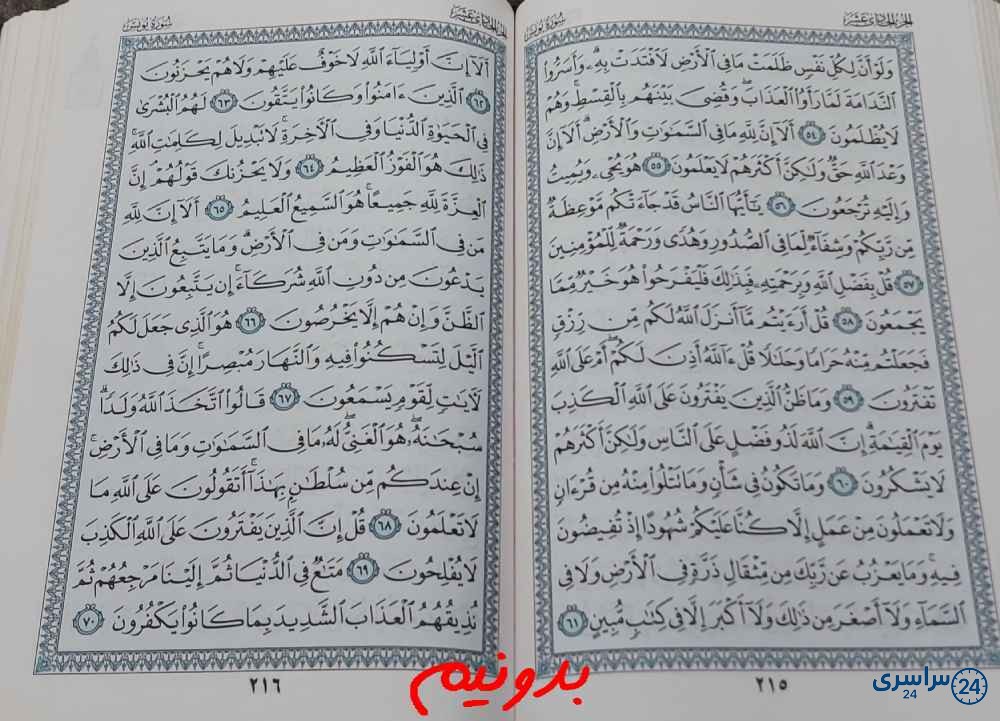 الجزء الحادي عشر
سورة يونس
وَلَوْ أَنَّ لِكُلِّ نَفْسٍ ظَلَمَتْ مَا فِي ٱلْأَرْضِ لَٱفْتَدَتْ بِهِۦ وَأَسَرُّوا۟
ٱلنَّدَامَةَ لَمَّا رَأَوُا۟ ٱلْعَذَابَ وَقُضِيَ بَيْنَهُم بِٱلْقِسْطِ وَهُمْ
لَا يُظْلَمُونَ ٥٤ أَلَآ إِنَّ لِلَّهِ مَا فِي ٱلسَّمَٰوَٰتِ وَٱلْأَرْضِ أَلَآ إِنَّ
وَعْدَ ٱللَّهِ حَقٌّ وَلَٰكِنَّ أَكْثَرَهُمْ لَا يَعْلَمُونَ ٥٥ هُوَ يُحْيِۦ وَيُمِيتُ
وَإِلَيْهِ تُرْجَعُونَ ٥٦ يَٰٓأَيُّهَا ٱلنَّاسُ قَدْ جَآءَتْكُم مَّوْعِظَةٌ
مِّن رَّبِّكُمْ وَشِفَآءٌ لِّمَا فِي ٱلصُّدُورِ وَهُدًى وَرَحْمَةٌ لِّلْمُؤْمِنِينَ
٥٧ قُلْ بِفَضْلِ ٱللَّهِ وَبِرَحْمَتِهِۦ فَبِذَٰلِكَ فَلْيَفْرَحُوا۟ هُوَ خَيْرٌ مِّمَّا
يَجْمَعُونَ ٥٨ قُلْ أَرَءَيْتُم مَّآ أَنزَلَ ٱللَّهُ لَكُم مِّن رِّزْقٍ
فَجَعَلْتُم مِّنْهُ حَرَامًا وَحَلَٰلًا قُلْ ءَآللَّهُ أَذِنَ لَكُمْ أَمْ عَلَى ٱللَّهِ
تَفْتَرُونَ ٥٩ وَمَا ظَنُّ ٱلَّذِينَ يَفْتَرُونَ عَلَى ٱللَّهِ ٱلْكَذِبَ
يَوْمَ ٱلْقِيَٰمَةِ إِنَّ ٱللَّهَ لَذُو فَضْلٍ عَلَى ٱلنَّاسِ وَلَٰكِنَّ أَكْثَرَهُمْ
لَا يَشْكُرُونَ ٦٠ وَمَا تَكُونُ فِي شَأْنٍ وَمَا تَتْلُوا۟ مِنْهُ مِن قُرْءَانٍ
وَلَا تَعْمَلُونَ مِنْ عَمَلٍ إِلَّا كُنَّا عَلَيْكُمْ شُهُودًا إِذْ تُفِيضُونَ
فِيهِ وَمَا يَعْزُبُ عَن رَّبِّكَ مِن مِّثْقَالِ ذَرَّةٍ فِي ٱلْأَرْضِ وَلَا فِي
ٱلسَّمَآءِ وَلَآ أَصْغَرَ مِن ذَٰلِكَ وَلَآ أَكْبَرَ إِلَّا فِي كِتَٰبٍ مُّبِينٍ ٦١
٢١٥
الجزء الحادي عشر
سورة يونس
أَلَآ إِنَّ أَوْلِيَآءَ ٱللَّهِ لَا خَوْفٌ عَلَيْهِمْ وَلَا هُمْ يَحْزَنُونَ
٦٢ ٱلَّذِينَ ءَامَنُوا۟ وَكَانُوا۟ يَتَّقُونَ ٦٣ لَهُمُ ٱلْبُشْرَىٰ
فِي ٱلْحَيَوٰةِ ٱلدُّنْيَا وَفِي ٱلْءَاخِرَةِ لَا تَبْدِيلَ لِكَلِمَٰتِ ٱللَّهِ
ذَٰلِكَ هُوَ ٱلْفَوْزُ ٱلْعَظِيمُ ٦٤ وَلَا يَحْزُنكَ قَوْلُهُمْ إِنَّ
ٱلْعِزَّةَ لِلَّهِ جَمِيعًا هُوَ ٱلسَّمِيعُ ٱلْعَلِيمُ ٦٥ أَلَآ إِنَّ لِلَّهِ
مَن فِي ٱلسَّمَٰوَٰتِ وَمَن فِي ٱلْأَرْضِ وَمَا يَتَّبِعُ ٱلَّذِينَ
يَدْعُونَ مِن دُونِ ٱللَّهِ شُرَكَآءَ إِن يَتَّبِعُونَ إِلَّا
ٱلظَّنَّ وَإِنْ هُمْ إِلَّا يَخْرُصُونَ ٦٦ هُوَ ٱلَّذِي جَعَلَ لَكُمُ
ٱلَّيْلَ لِتَسْكُنُوا۟ فِيهِ وَٱلنَّهَارَ مُبْصِرًا إِنَّ فِي ذَٰلِكَ
لَءَايَٰتٍ لِّقَوْمٍ يَسْمَعُونَ ٦٧ قَالُوا۟ ٱتَّخَذَ ٱللَّهُ وَلَدًا
سُبْحَٰنَهُۥ هُوَ ٱلْغَنِيُّ لَهُۥ مَا فِي ٱلسَّمَٰوَٰتِ وَمَا فِي ٱلْأَرْضِ
إِنْ عِندَكُم مِّن سُلْطَٰنٍۭ بِهَٰذَآ أَتَقُولُونَ عَلَى ٱللَّهِ مَا
لَا تَعْلَمُونَ ٦٨ قُلْ إِنَّ ٱلَّذِينَ يَفْتَرُونَ عَلَى ٱللَّهِ ٱلْكَذِبَ
لَا يُفْلِحُونَ ٦٩ مَتَٰعٌ فِي ٱلدُّنْيَا ثُمَّ إِلَيْنَا مَرْجِعُهُمْ ثُمَّ
نُذِيقُهُمُ ٱلْعَذَابَ ٱلشَّدِيدَ بِمَا كَانُوا۟ يَكْفُرُونَ ٧٠
٢١٦
بدونیم
سراسری 24
24